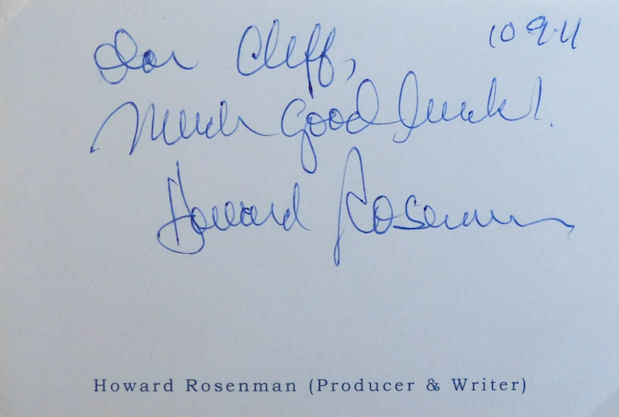 Dear Cliff, 10 9.11
Much good luck!
Howard Rosenman
Howard Rosenman (Producer & Writer)